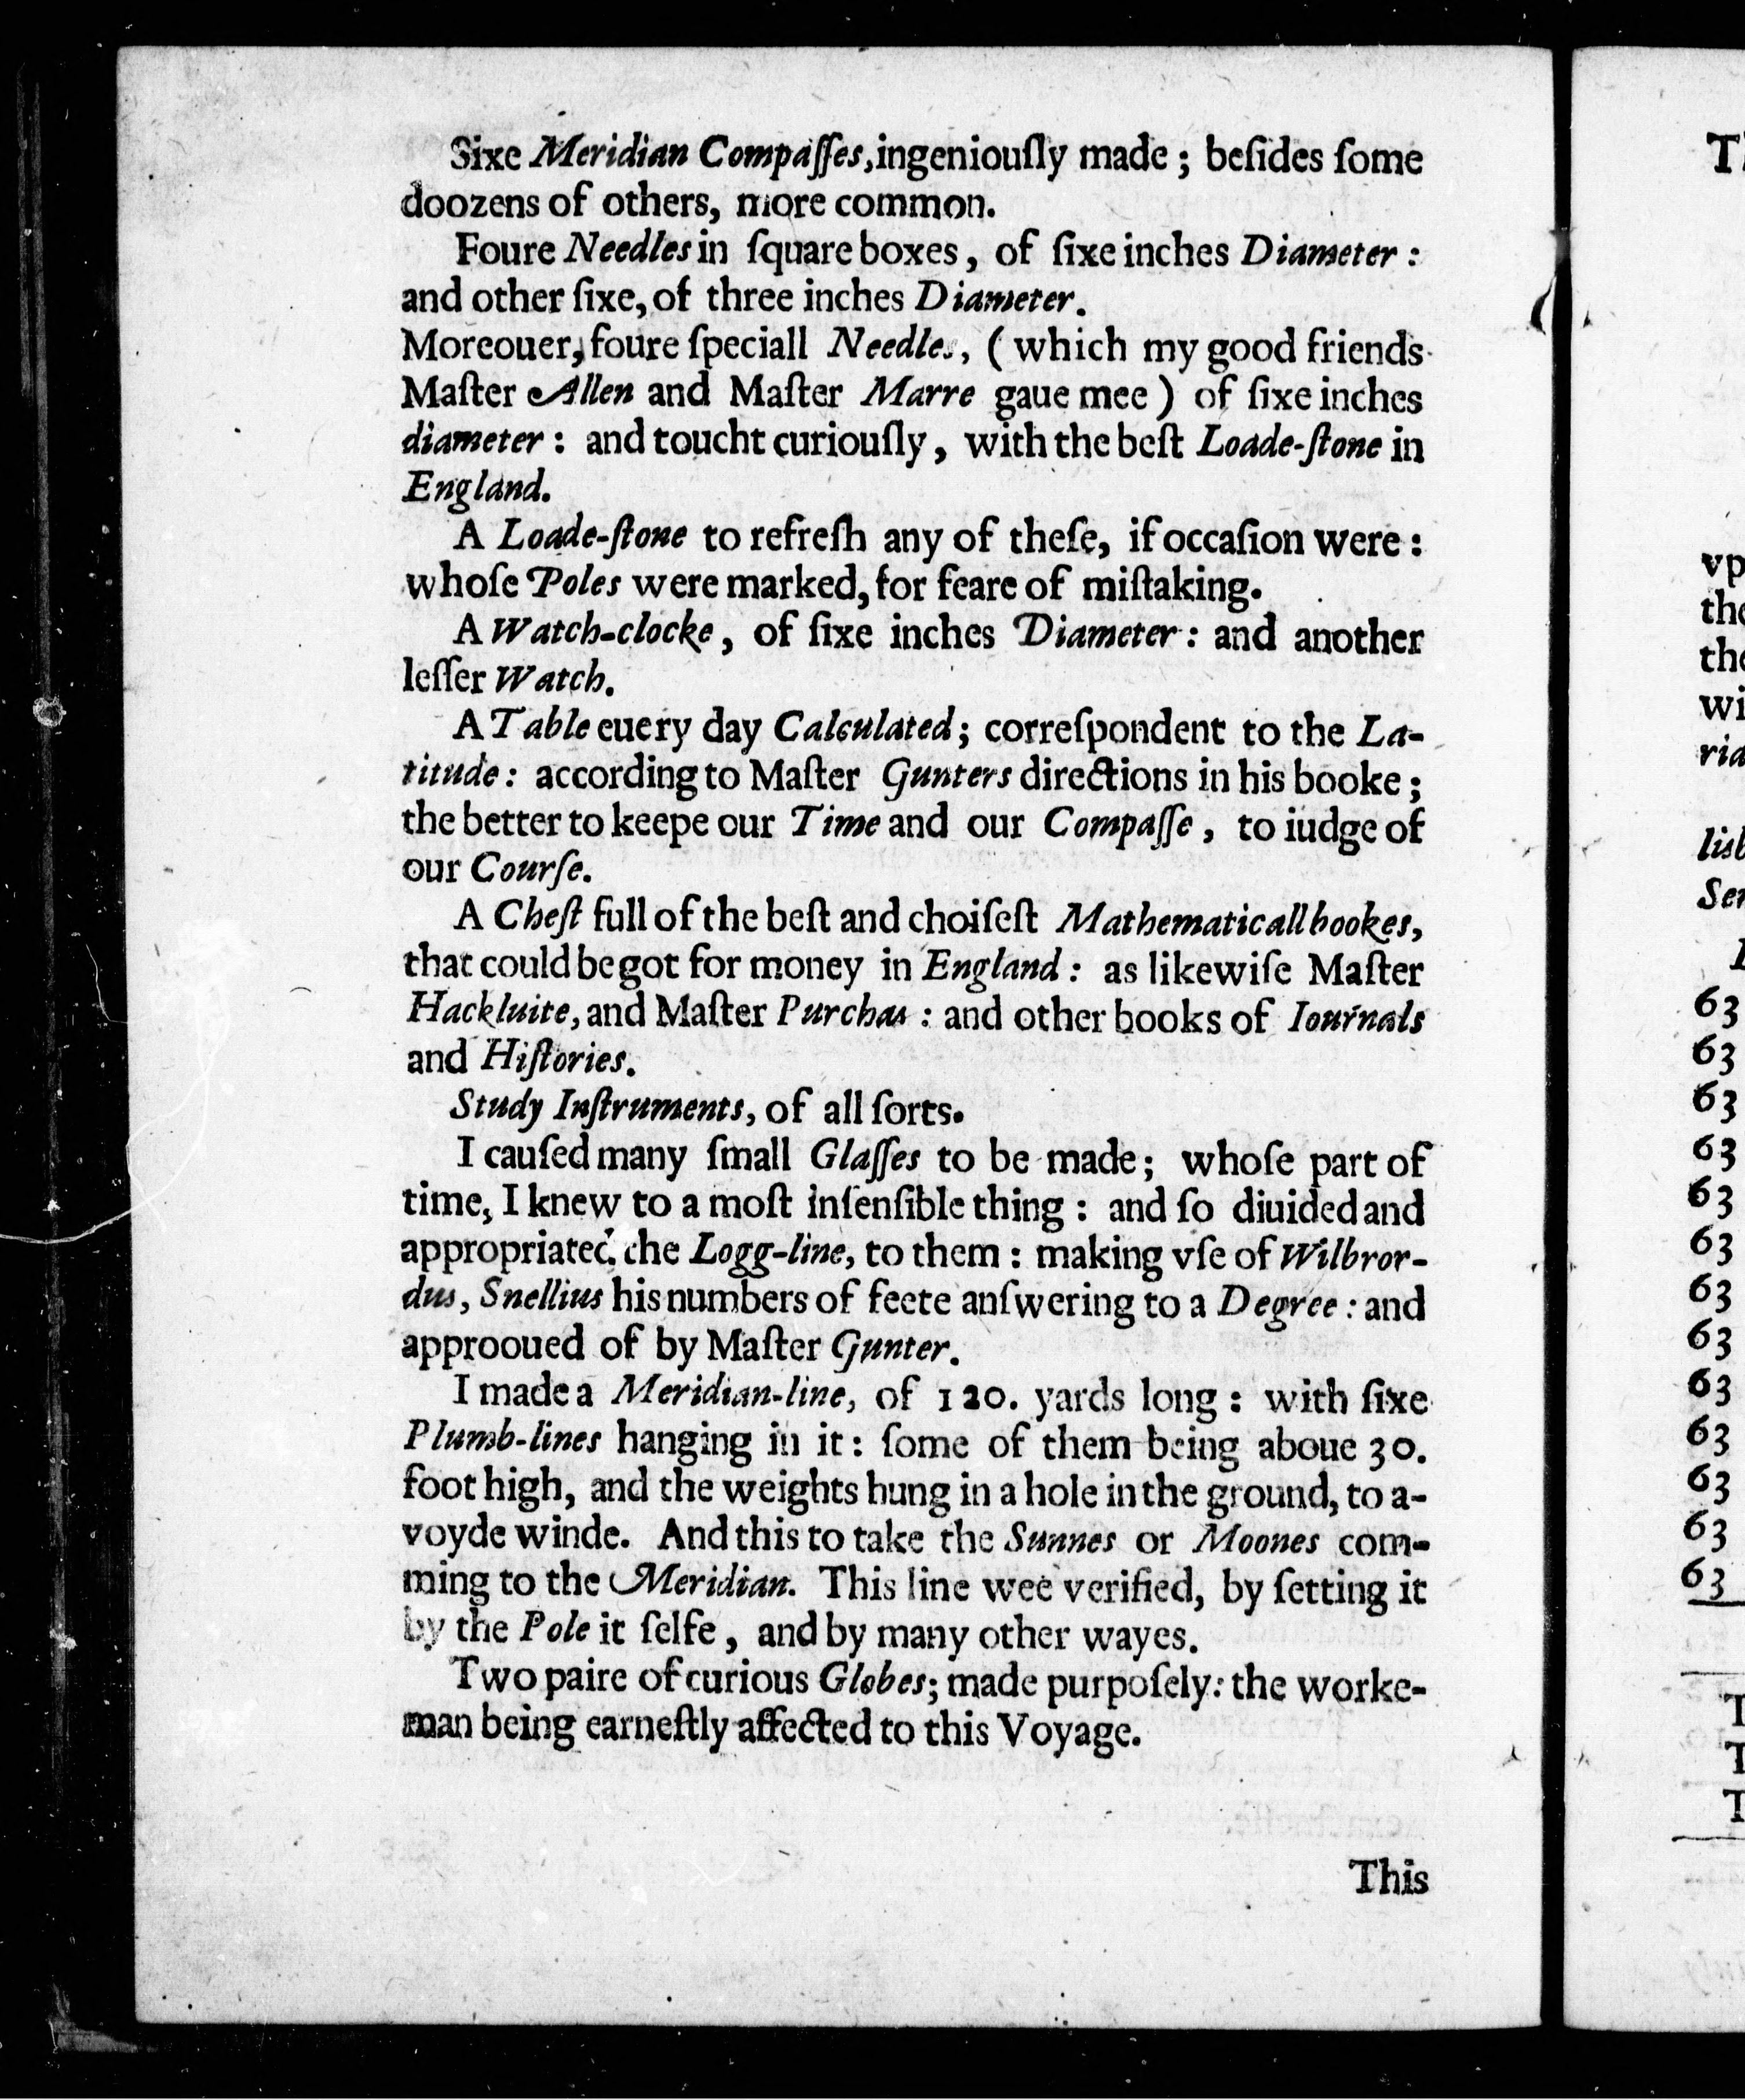 Sixe Meridian Compaſſes, ingeniouſly made ; beſides ſome
doozens of others, more common.
Foure Needles in ſquare boxes, of ſixe inches Diameter :
and other ſixe, of three inches Diameter.
Moreouer, foure ſpeciall Needles, ( which my good friends
Maſter Allen and Maſter Marre gaue mee ) of ſixe inches
diameter : and toucht curiouſly, with the beſt Loade-ſtone in
England.
A Loade-ſtone to refreſh any of theſe, if occaſion were :
whoſe Poles were marked, for feare of miſtaking.
A Watch-clocke, of ſixe inches Diameter : and another
leſſer Watch.
A Table euery day Calculated ; correſpondent to the La-
titude : according to Maſter Gunters directions in his booke ;
the better to keepe our Time and our Compaſſe, to iudge of
our Courſe.
A Cheſt full of the beſt and choiſeſt Mathematicall bookes,
that could be got for money in England : as likewiſe Maſter
Hackluite, and Maſter Purchas : and other books of Iournals
and Hiſtories.
Study Inſtruments, of all ſorts.
I cauſed many ſmall Glaſſes to be made ; whoſe part of
time, I knew to a moſt inſenſible thing : and ſo diuided and
appropriated the Logg-line, to them : making vſe of Wilbror-
dus, Snellius his numbers of feete anſwering to a Degree : and
approoued of by Maſter Gunter.
I made a Meridian-line, of 120. yards long : with ſixe
Plumb-lines hanging in it : ſome of them being aboue 30.
foot high, and the weights hung in a hole in the ground, to a-
voyde winde. And this to take the Sunnes or Moones com-
ming to the Meridian. This line wee verified, by ſetting it
by the Pole it ſelfe, and by many other wayes.
Two paire of curious Globes ; made purpoſely : the worke-
man being earneſtly affected to this Voyage.
This
63
63
63
63
63
63
63
63
63
63
63
63
63